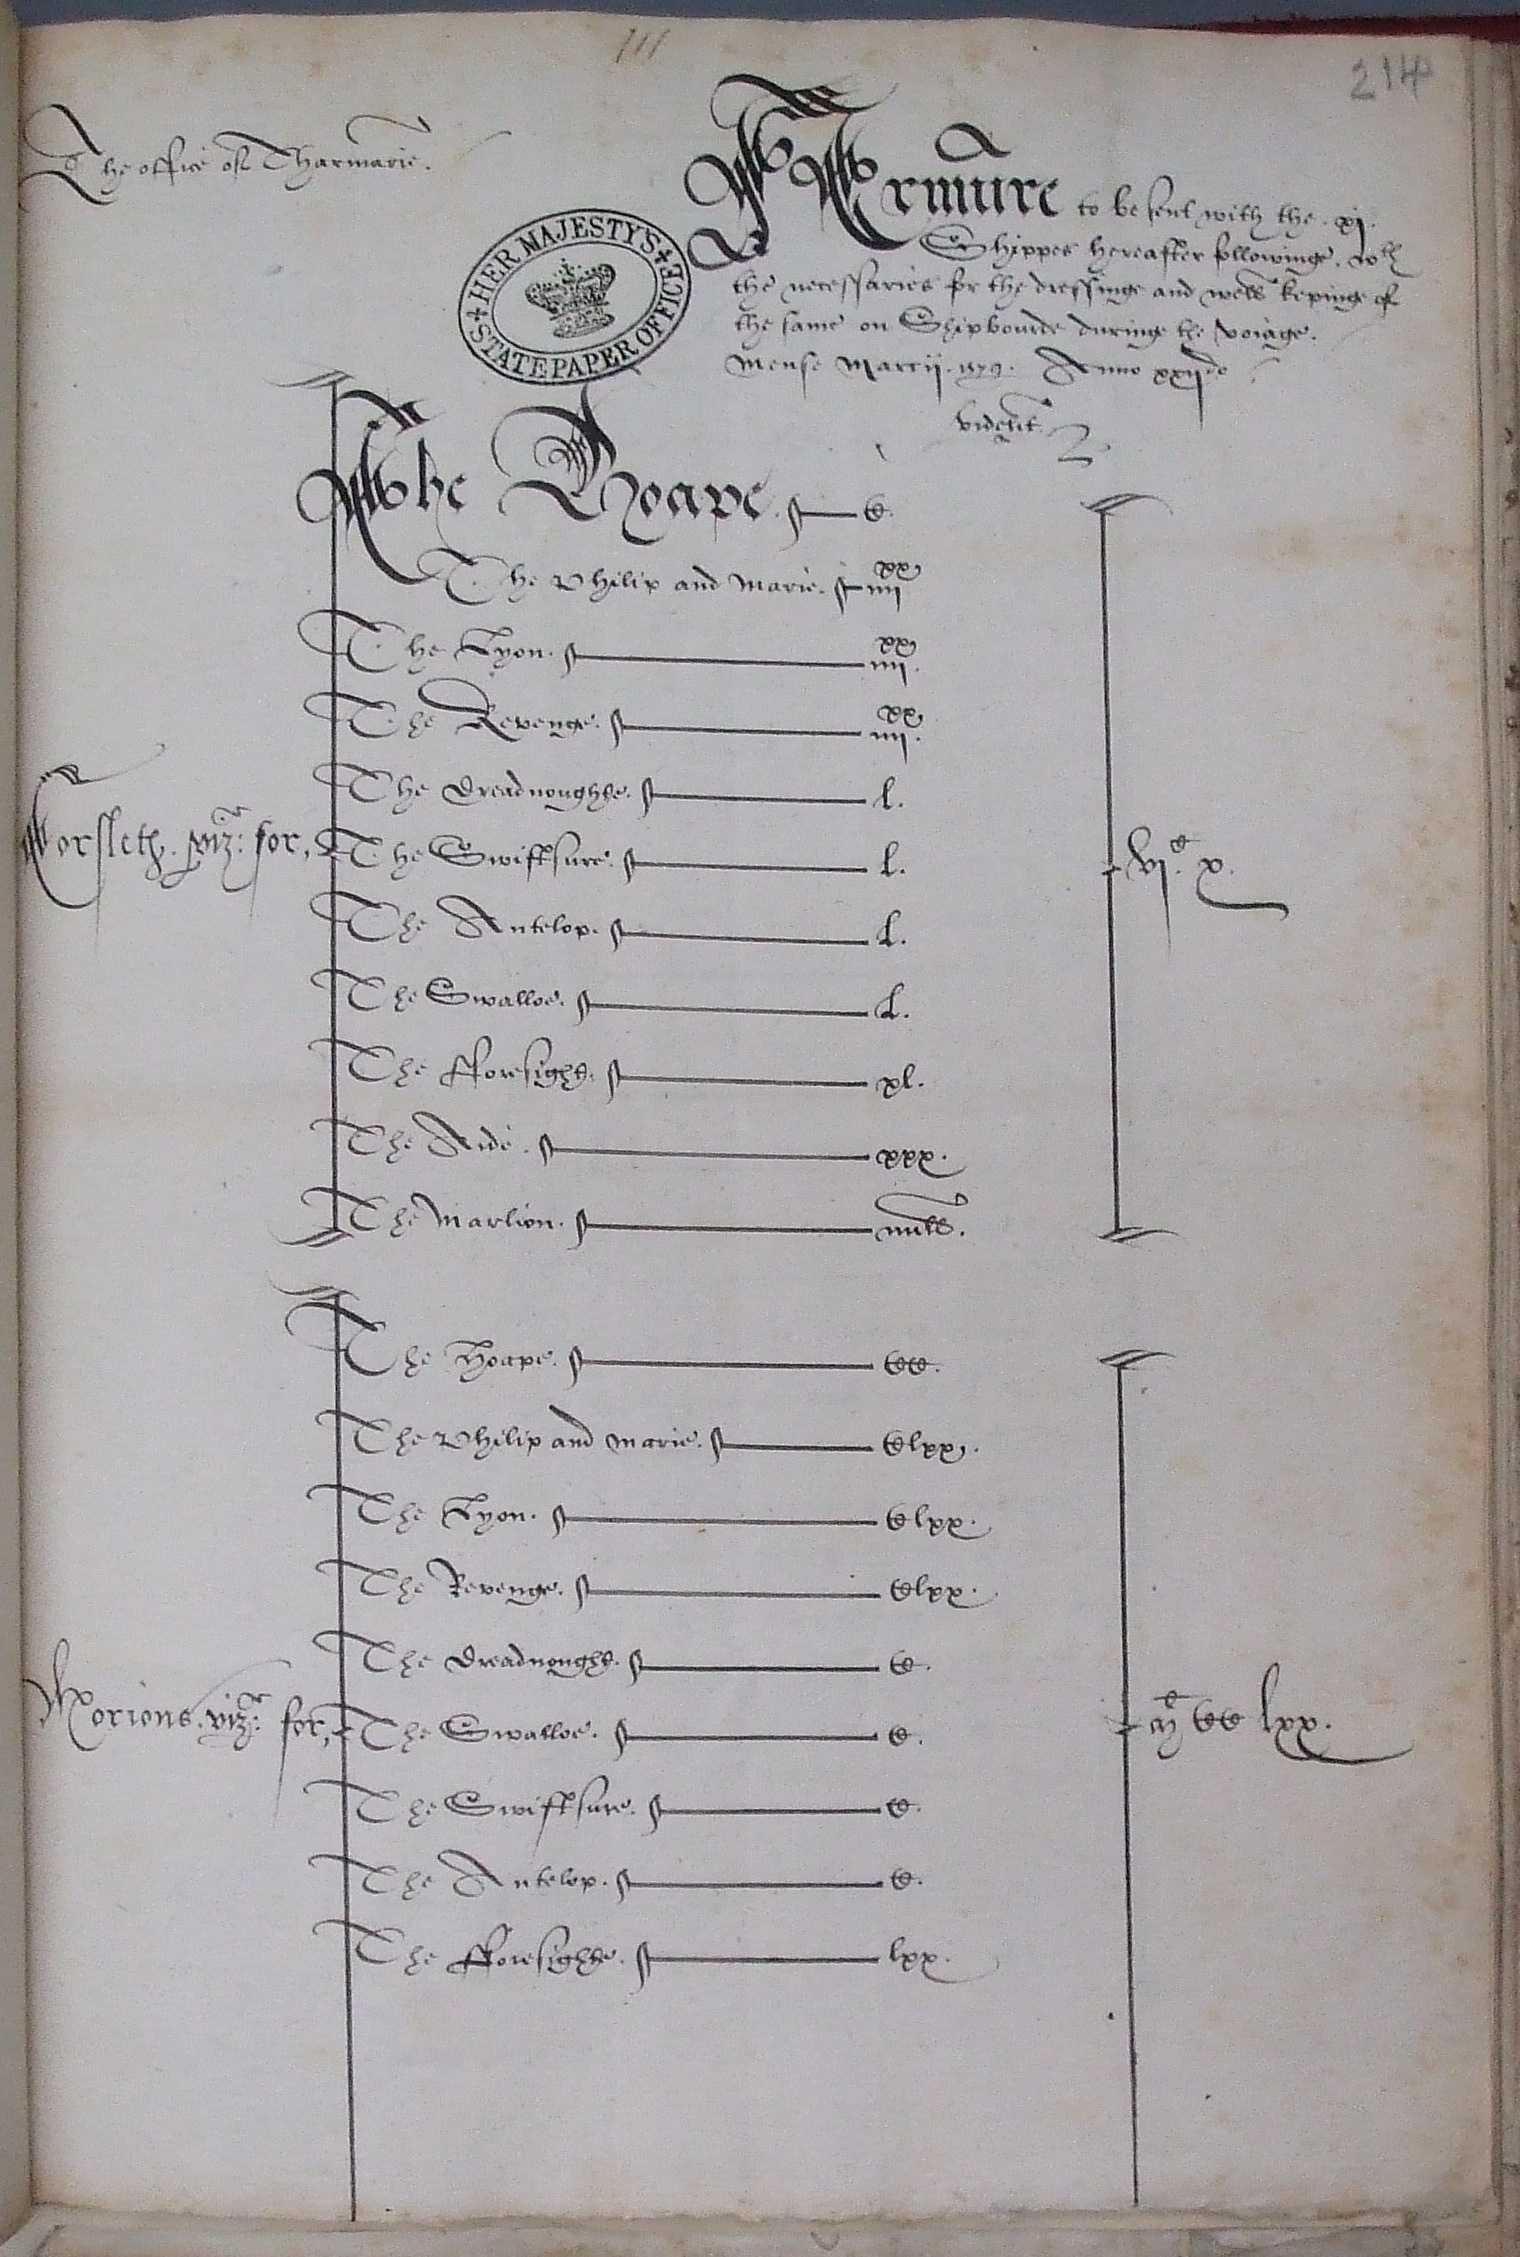 111
214
The office of Tharmarie.
Armure to be sent with the .xj.
Shippes hereafter followinge, wth
the necessaries for the dressinge and well kepinge of
the same on Shipbourde duringe the voiage.
Mense Marcij .1579. Anno xxijdo
videlt
HER MAJESTY'S
STATE PAPER OFFICE
The Hoape. C.
The Philip and Marie. iiij xx
The Lyon. iiij xx.
The Revenge. iiij xx.
The Dreadnoughte. l.
Corsletts. viz: for,
The Swiftsure. l.
vj c. x.
The Antelop. l.
The Swalloe. l.
The fforesight. xl.
The Aide. xxx.
The Marlion. null.
The Hoape. CC.
The Philip and Marie. Clxx.
The Lyon. Clxx.
The Revenge. Clxx.
The Dreadnought. C.
Morions. viz: for,
The Swalloe. C.
CC lxx.
The Swiftsure. C.
The Antelop. C.
The fforesighte. lxx.